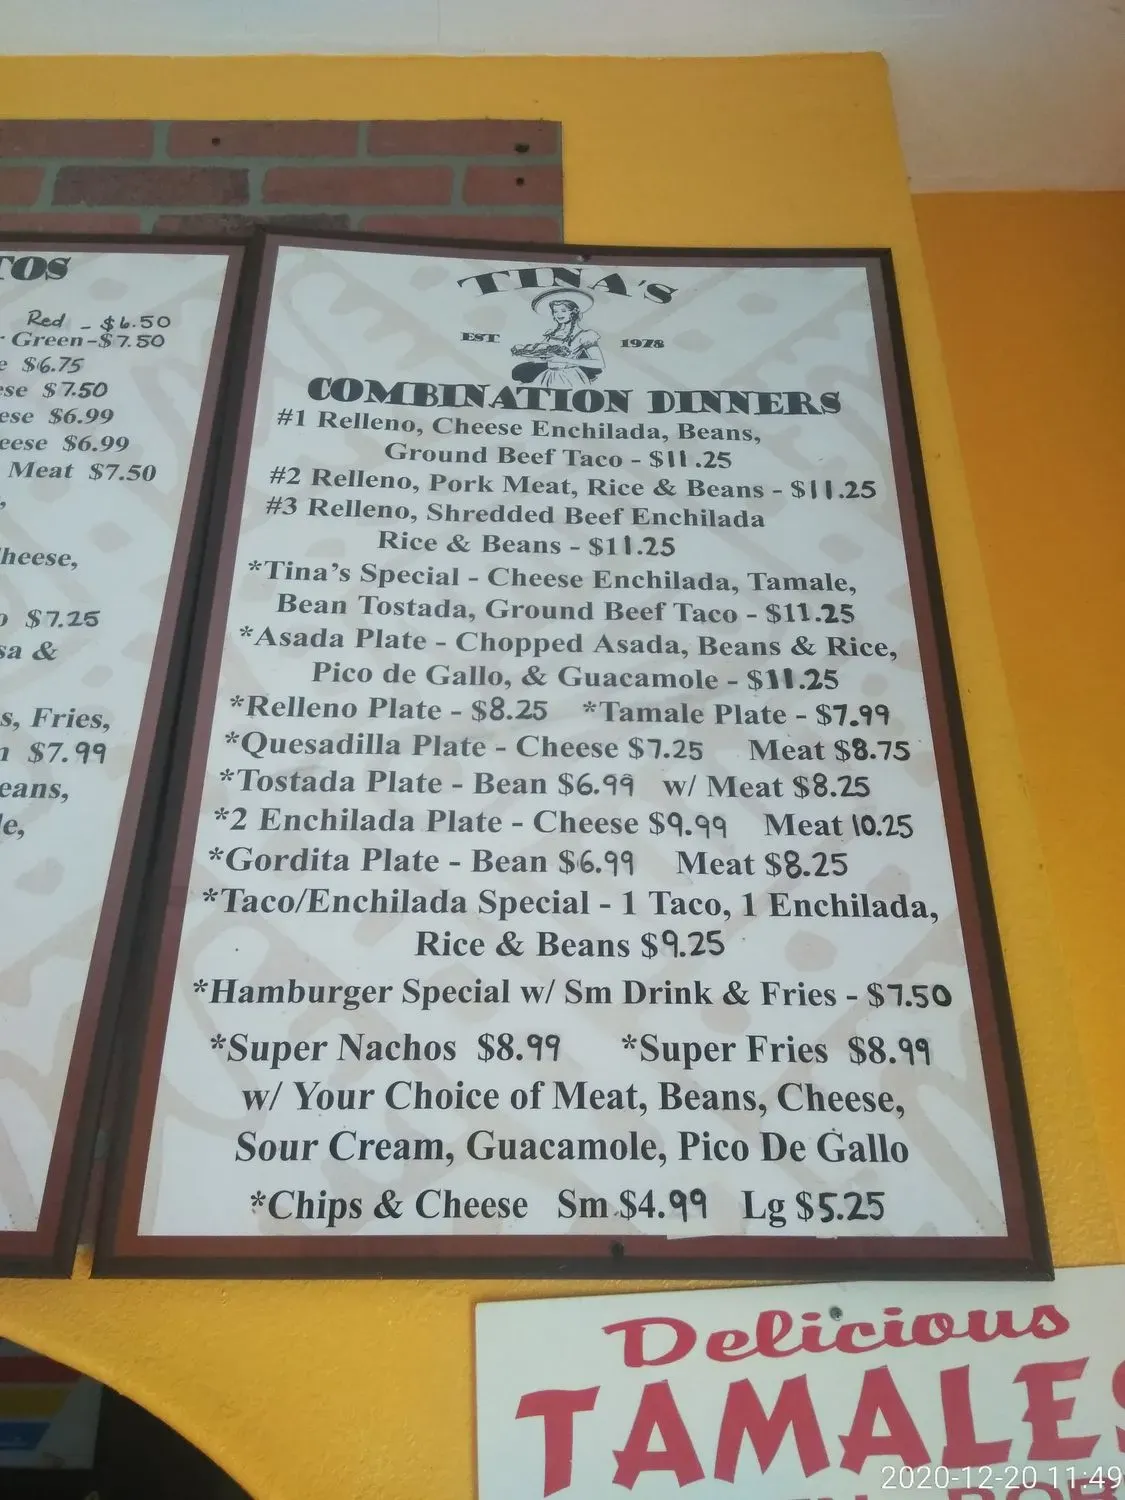 TOS
Red - $6.50
Green-$7.50
$6.75
$7.50
$6.99
$6.99
Meat $7.50
$7.25
&
Fries,
$7.99
TINA'S
EST. 1978
COMBINATION DINNERS
#1 Relleno, Cheese Enchilada, Beans,
Ground Beef Taco - $11.25
#2 Relleno, Pork Meat, Rice & Beans - $11.25
#3 Relleno, Shredded Beef Enchilada
Rice & Beans - $11.25
*Tina's Special - Cheese Enchilada, Tamale,
Bean Tostada, Ground Beef Taco - $11.25
*Asada Plate - Chopped Asada, Beans & Rice,
Pico de Gallo, & Guacamole - $11.25
*Relleno Plate - $8.25 *Tamale Plate - $7.99
*Quesadilla Plate - Cheese $7.25 Meat $8.75
*Tostada Plate - Bean $6.99 w/ Meat $8.25
*2 Enchilada Plate - Cheese $9.99 Meat 10.25
*Gordita Plate - Bean $6.99 Meat $8.25
*Taco/Enchilada Special - 1 Taco, 1 Enchilada,
Rice & Beans $9.25
*Hamburger Special w/ Sm Drink & Fries - $7.50
*Super Nachos $8.99 *Super Fries $8.99
w/ Your Choice of Meat, Beans, Cheese,
Sour Cream, Guacamole, Pico De Gallo
*Chips & Cheese Sm $4.99 Lg $5.25
Delicious
TAMALES
2020-12-20 11:49